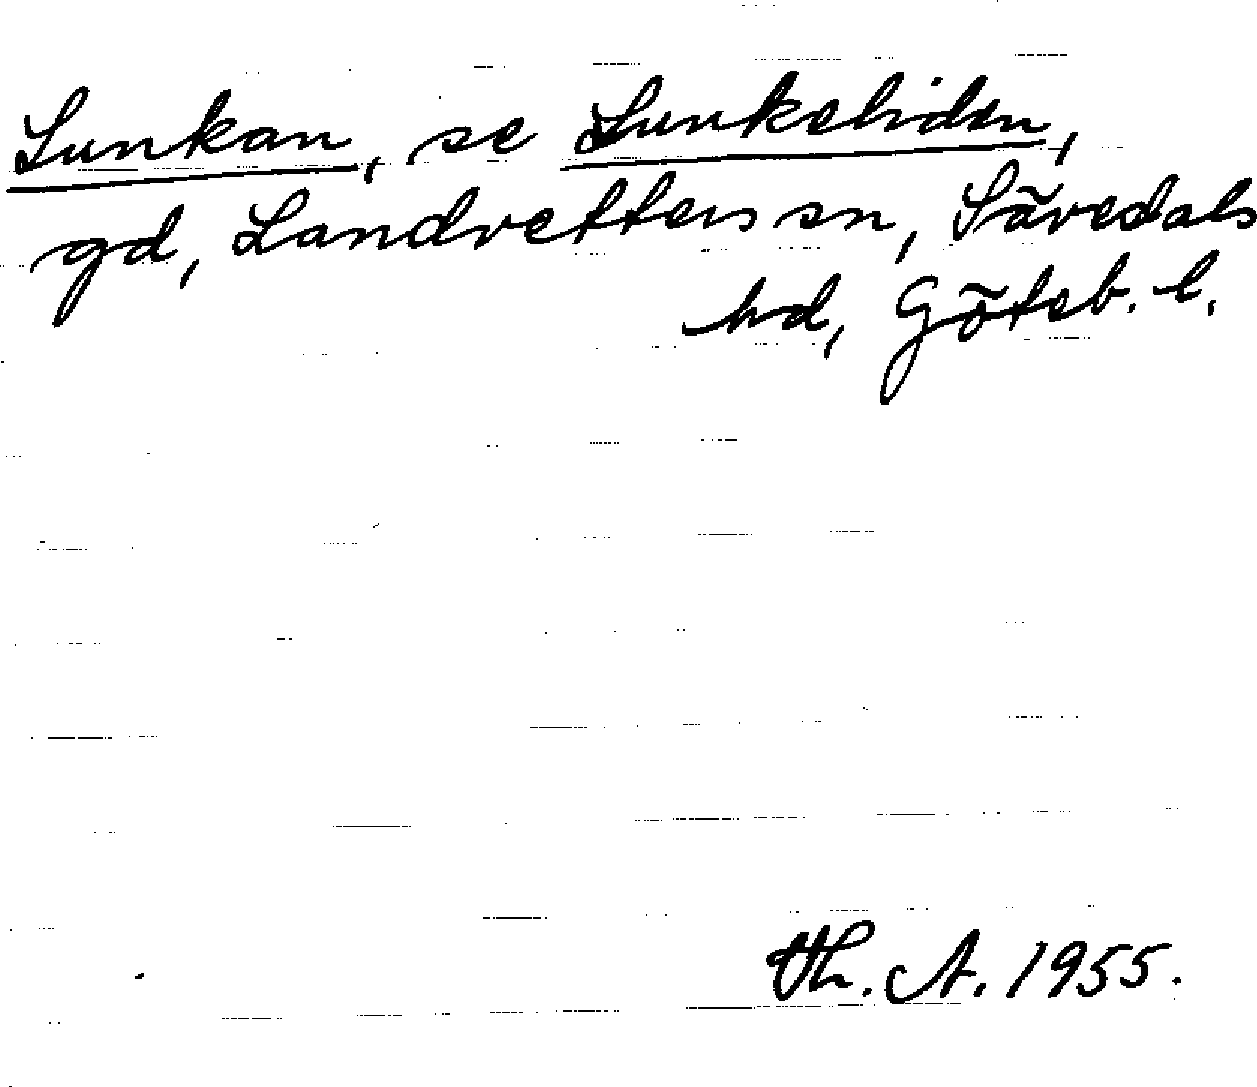 Lunkan, se Lunkeliden,
gd, Landvetters sn, Sävedals
hd, Göteb. l.
Th. A. 1955.